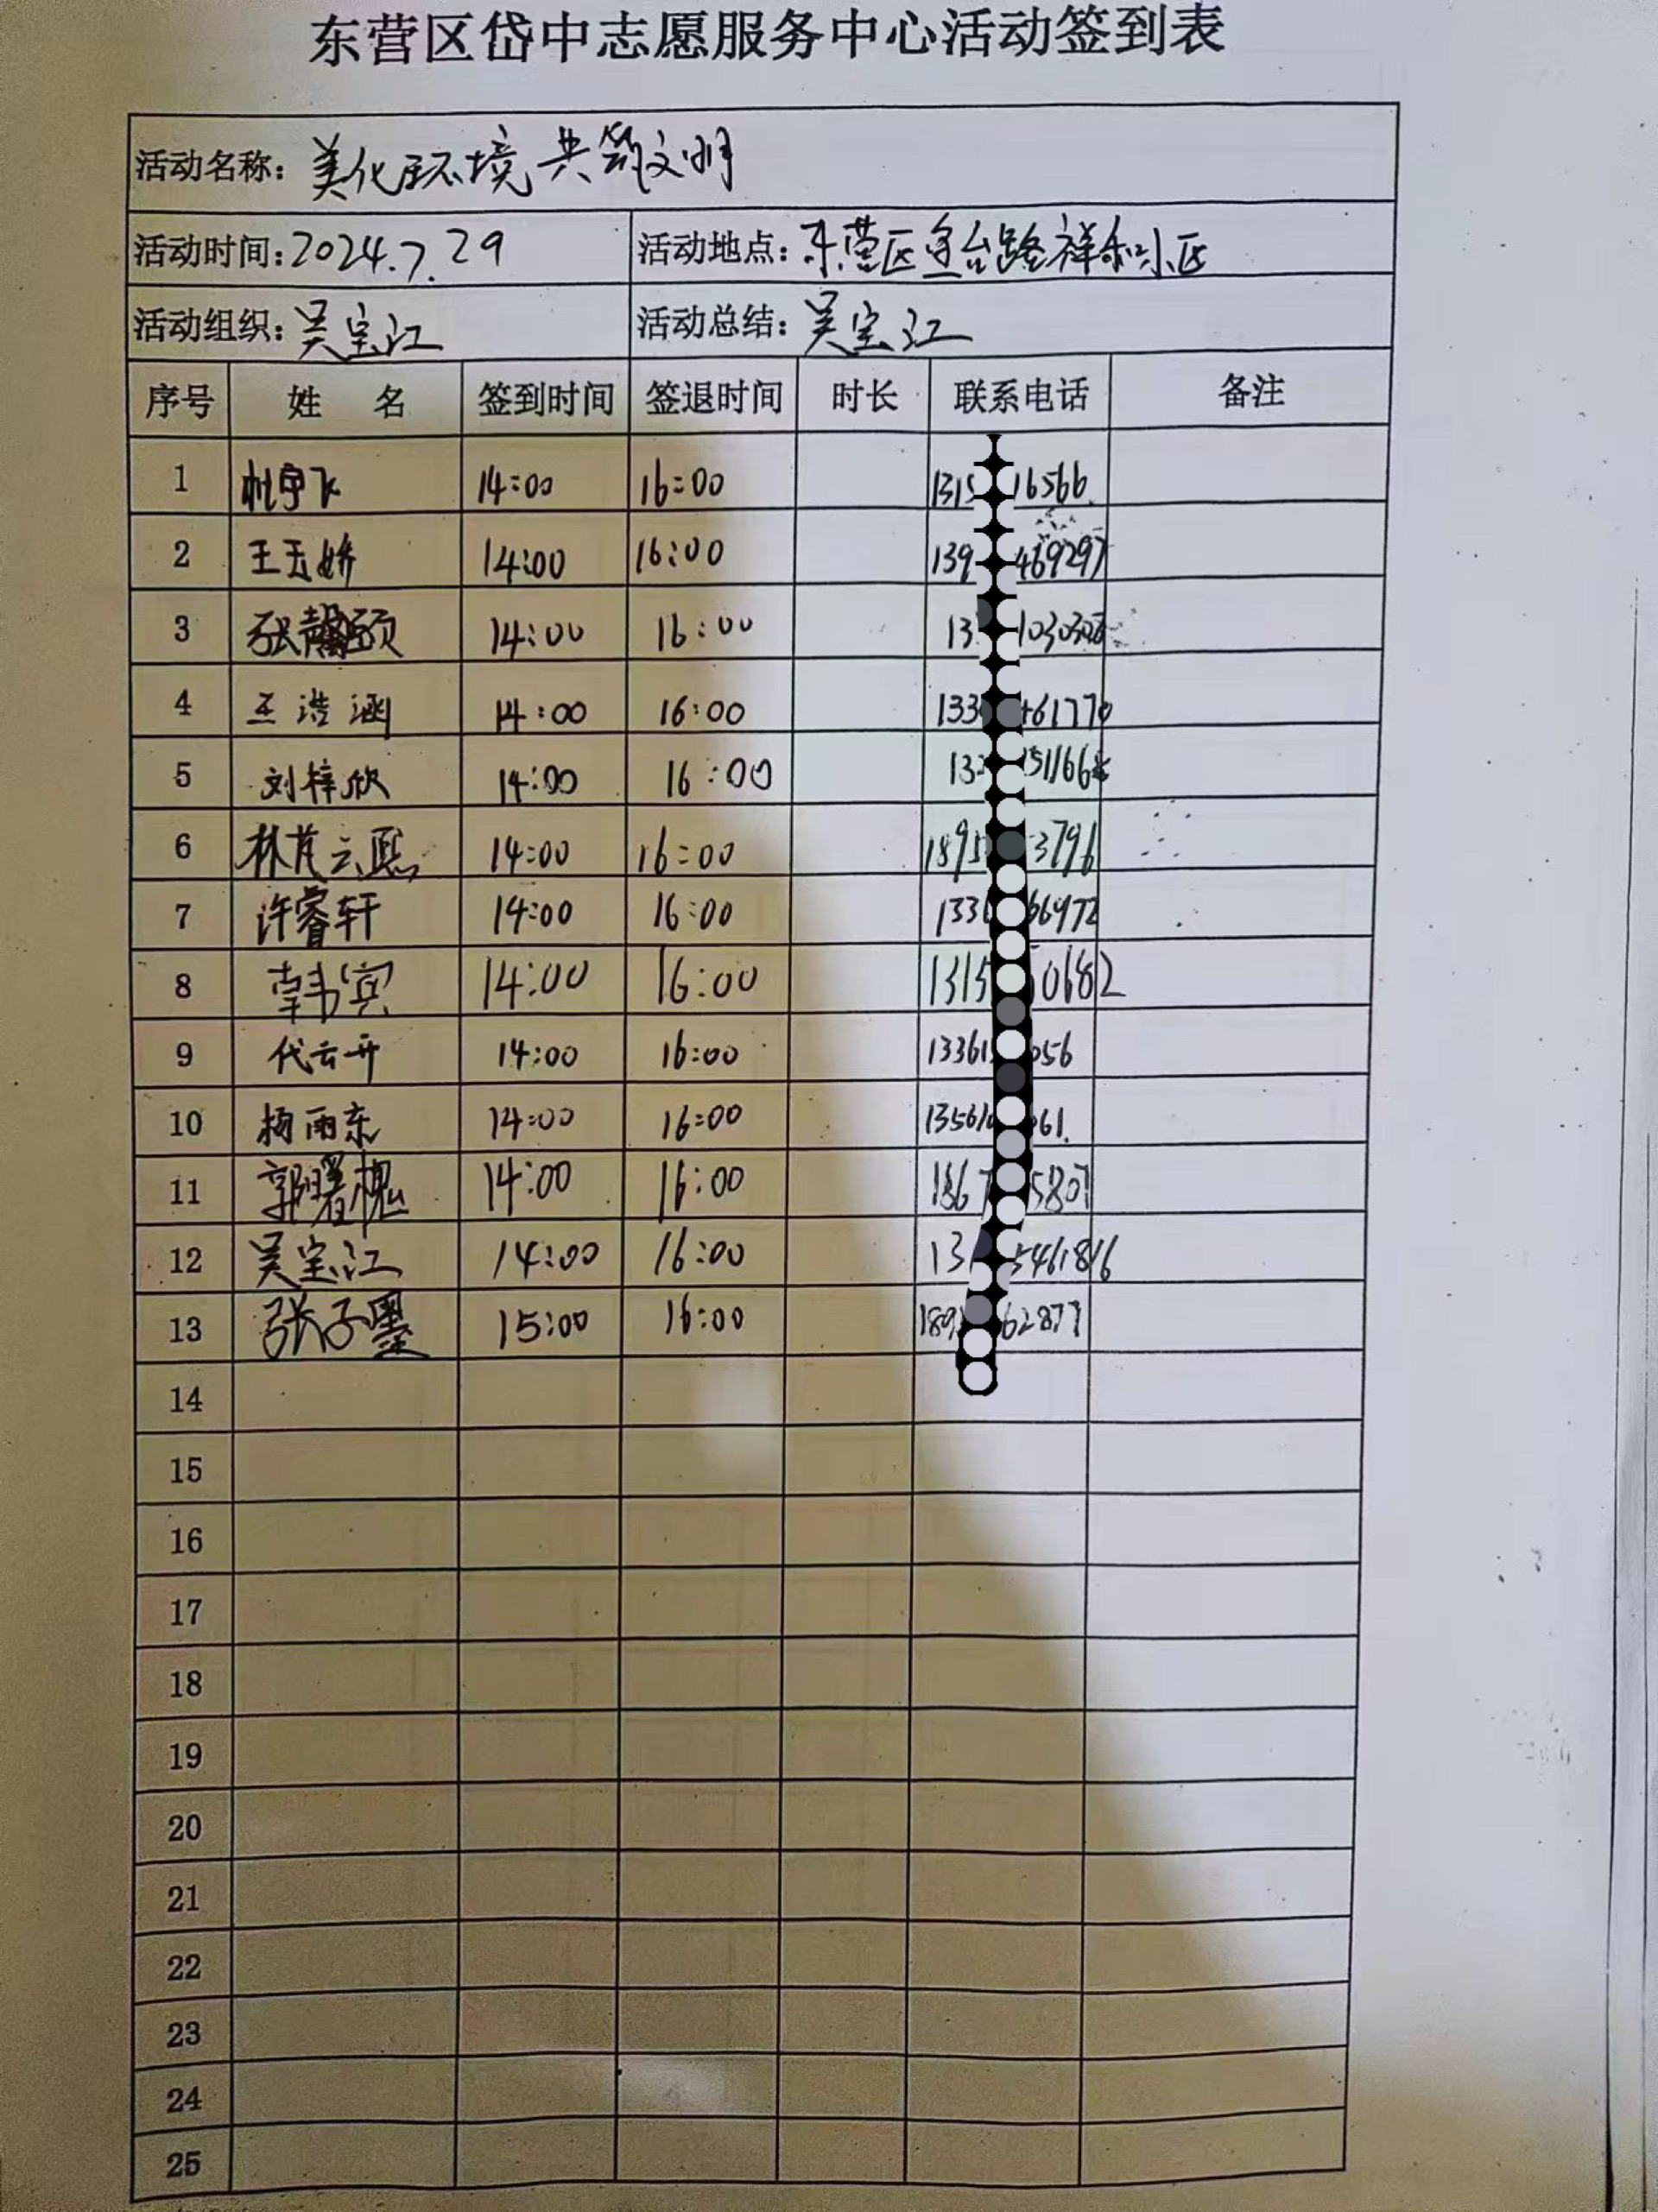 东营区岱中志愿服务中心活动签到表
活动名称：美化环境 共筑文明
活动时间：2024.7.29 活动地点：东营区 路祥和小区
活动组织：吴宝江 活动总结：吴宝江
序号 姓 名 签到时间 签退时间 时长 联系电话 备注
1 杜宇飞 14:00 16:00 1315 16566
2 王玉娇 14:00 16:00 139 469297
3 张馨颐 14:00 16:00 13
4 王浩涵 14:00 16:00 133 461770
5 刘梓欣 14:00 16:00 13
6 林 云熙 14:00 16:00 1895 3796
7 许睿轩 14:00 16:00 133 66972
8 韩宾 14:00 16:00 1315 0682
9 代云开 14:00 16:00 13361 056
10 杨雨东 14:00 16:00 13561 061
11 郭曙槐 14:00 16:00 1867 5807
12 吴宝江 14:00 16:00 13 5461816
13 张子墨 15:00 16:00 189 62877
14
15
16
17
18
19
20
21
22
23
24
25